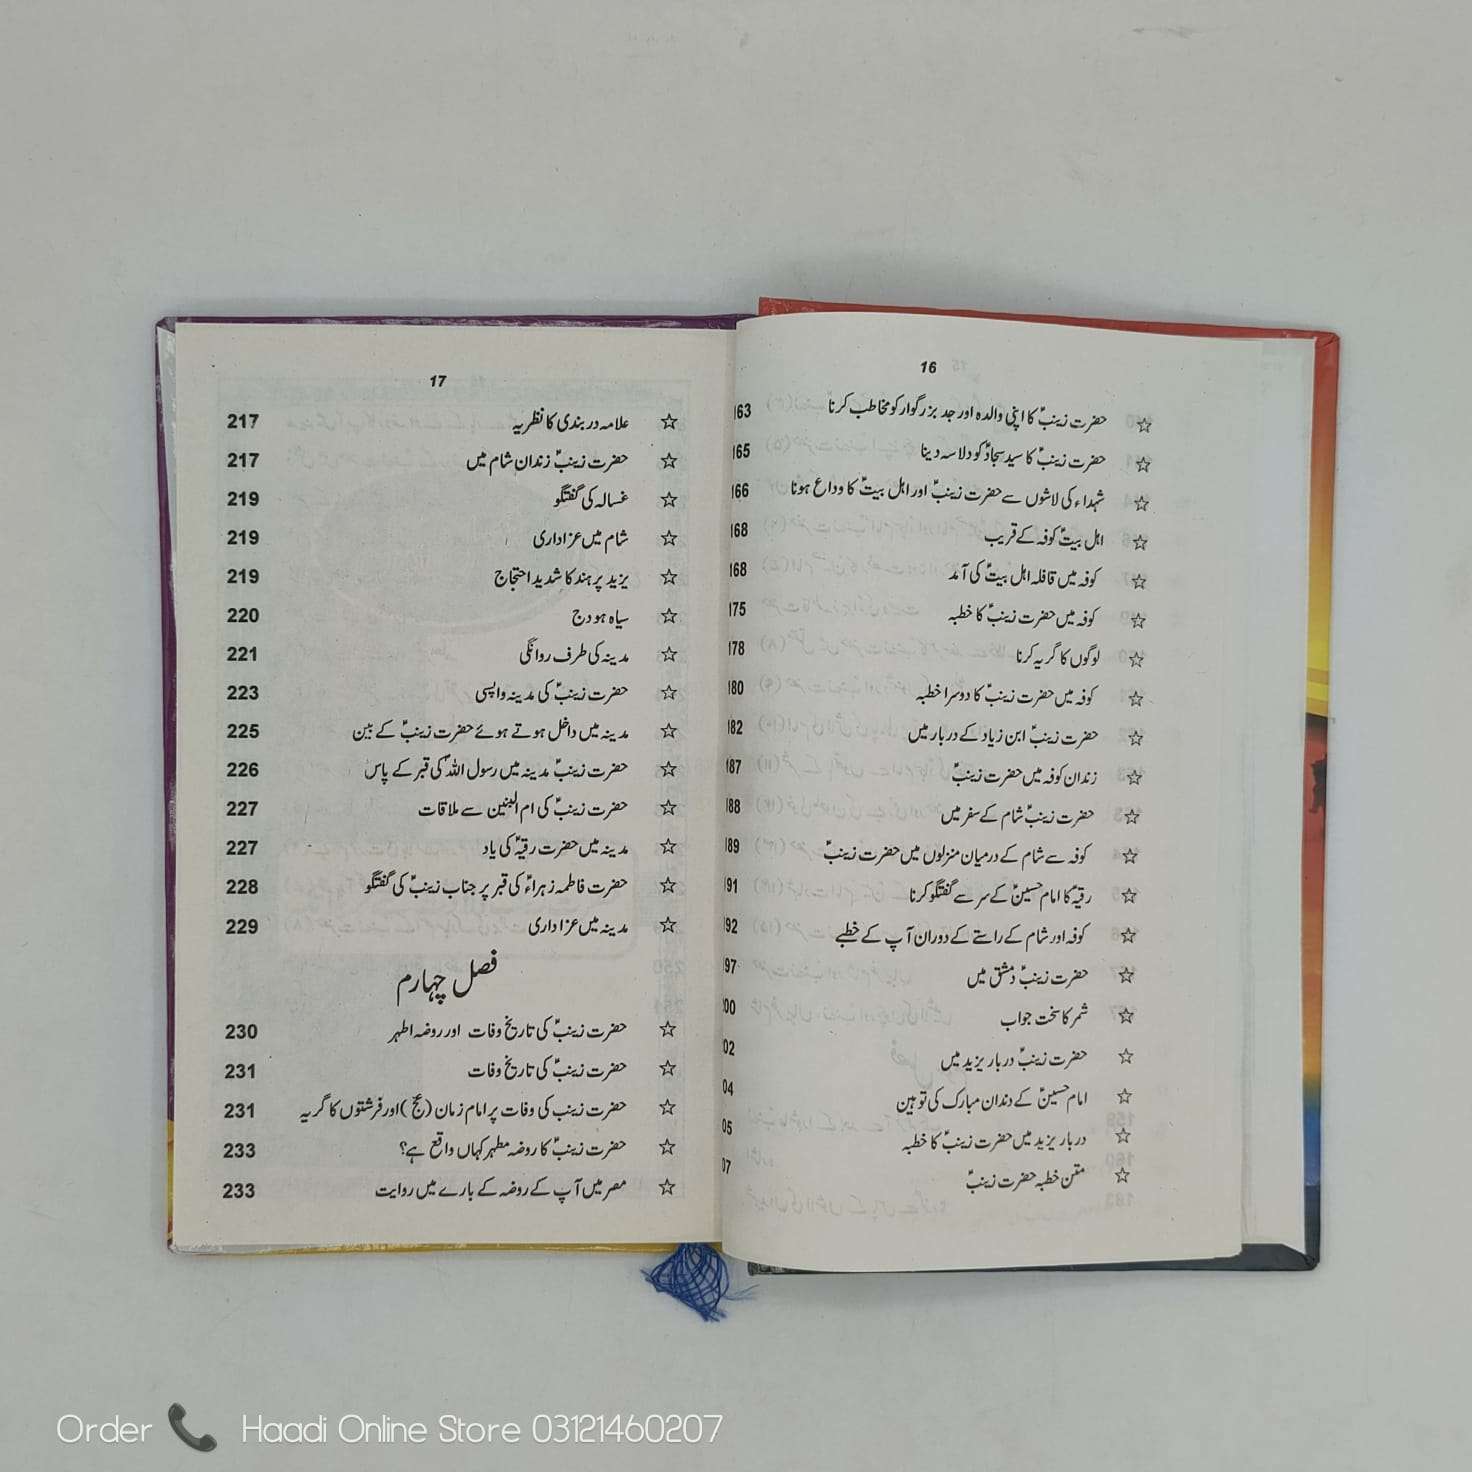 16
☆ حضرت زینبؑ کا اپنی والدہ اور جد بزرگوار کو مخاطب کرنا 163
☆ حضرت زینبؑ کا سید سجادؑ کو دلاسہ دینا 165
☆ شہداء کی لاشوں سے حضرت زینبؑ اور اہل بیتؑ کا وداع ہونا 166
☆ اہل بیتؑ کوفہ کے قریب 168
☆ کوفہ میں قافلہ اہل بیتؑ کی آمد 168
☆ کوفہ میں حضرت زینبؑ کا خطبہ 175
☆ لوگوں کا گریہ کرنا 178
☆ کوفہ میں حضرت زینبؑ کا دوسرا خطبہ 180
☆ حضرت زینبؑ ابن زیاد کے دربار میں 182
☆ زندان کوفہ میں حضرت زینبؑ 187
☆ حضرت زینبؑ شام کے سفر میں 88
☆ کوفہ سے شام کے درمیان منزلوں میں حضرت زینبؑ 89
☆ رقیہؑ کا امام حسینؑ کے سر سے گفتگو کرنا 91
☆ کوفہ اور شام کے راستے کے دوران آپ کے خطبے 92
☆ حضرت زینبؑ دمشق میں 97
☆ شمر کا سخت جواب 00
☆ حضرت زینبؑ دربار یزید میں 02
☆ امام حسینؑ کے دندان مبارک کی توہین 04
☆ دربار یزید میں حضرت زینبؑ کا خطبہ 05
☆ متن خطبہ حضرت زینبؑ 07
17
☆ علامہ دربندی کا نظریہ 217
☆ حضرت زینبؑ زندان شام میں 217
☆ غسالہ کی گفتگو 219
☆ شام میں عزاداری 219
☆ یزید پر ہند کا شدید احتجاج 219
☆ سیاہ ہودج 220
☆ مدینہ کی طرف روانگی 221
☆ حضرت زینبؑ کی مدینہ واپسی 223
☆ مدینہ میں داخل ہوتے ہوئے حضرت زینبؑ کے بین 225
☆ حضرت زینبؑ مدینہ میں رسول اللہؐ کی قبر کے پاس 226
☆ حضرت زینبؑ کی ام البنین سے ملاقات 227
☆ مدینہ میں حضرت رقیہؑ کی یاد 227
☆ حضرت فاطمہ زہراءؑ کی قبر پر جناب زینبؑ کی گفتگو 228
☆ مدینہ میں عزاداری 229
فصل چہارم
☆ حضرت زینبؑ کی تاریخ وفات اور روضہ اطہر 230
☆ حضرت زینبؑ کی تاریخ وفات 231
☆ حضرت زینبؑ کی وفات پر امام زمان (عج) اور فرشتوں کا گریہ 231
☆ حضرت زینبؑ کا روضہ مطہر کہاں واقع ہے؟ 233
☆ مصر میں آپ کے روضہ کے بارے میں روایت 233
Order 📞 Haadi Online Store 03121460207